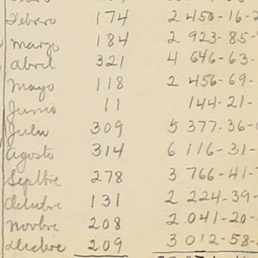 Febrero 174 2 450-16-2
Marzo 184 2 923-85-
Abril 321 4 646-63-
Mayo 118 2 456-69-
Junio 11 144-21-
Julio 309 5 377-36-
Agosto 314 6 116-31-
Septbre 278 3 766-41-
Octubre 131 2 224-39-
Novbre 208 2.041-20-
Dicbre 209 3 012-58-